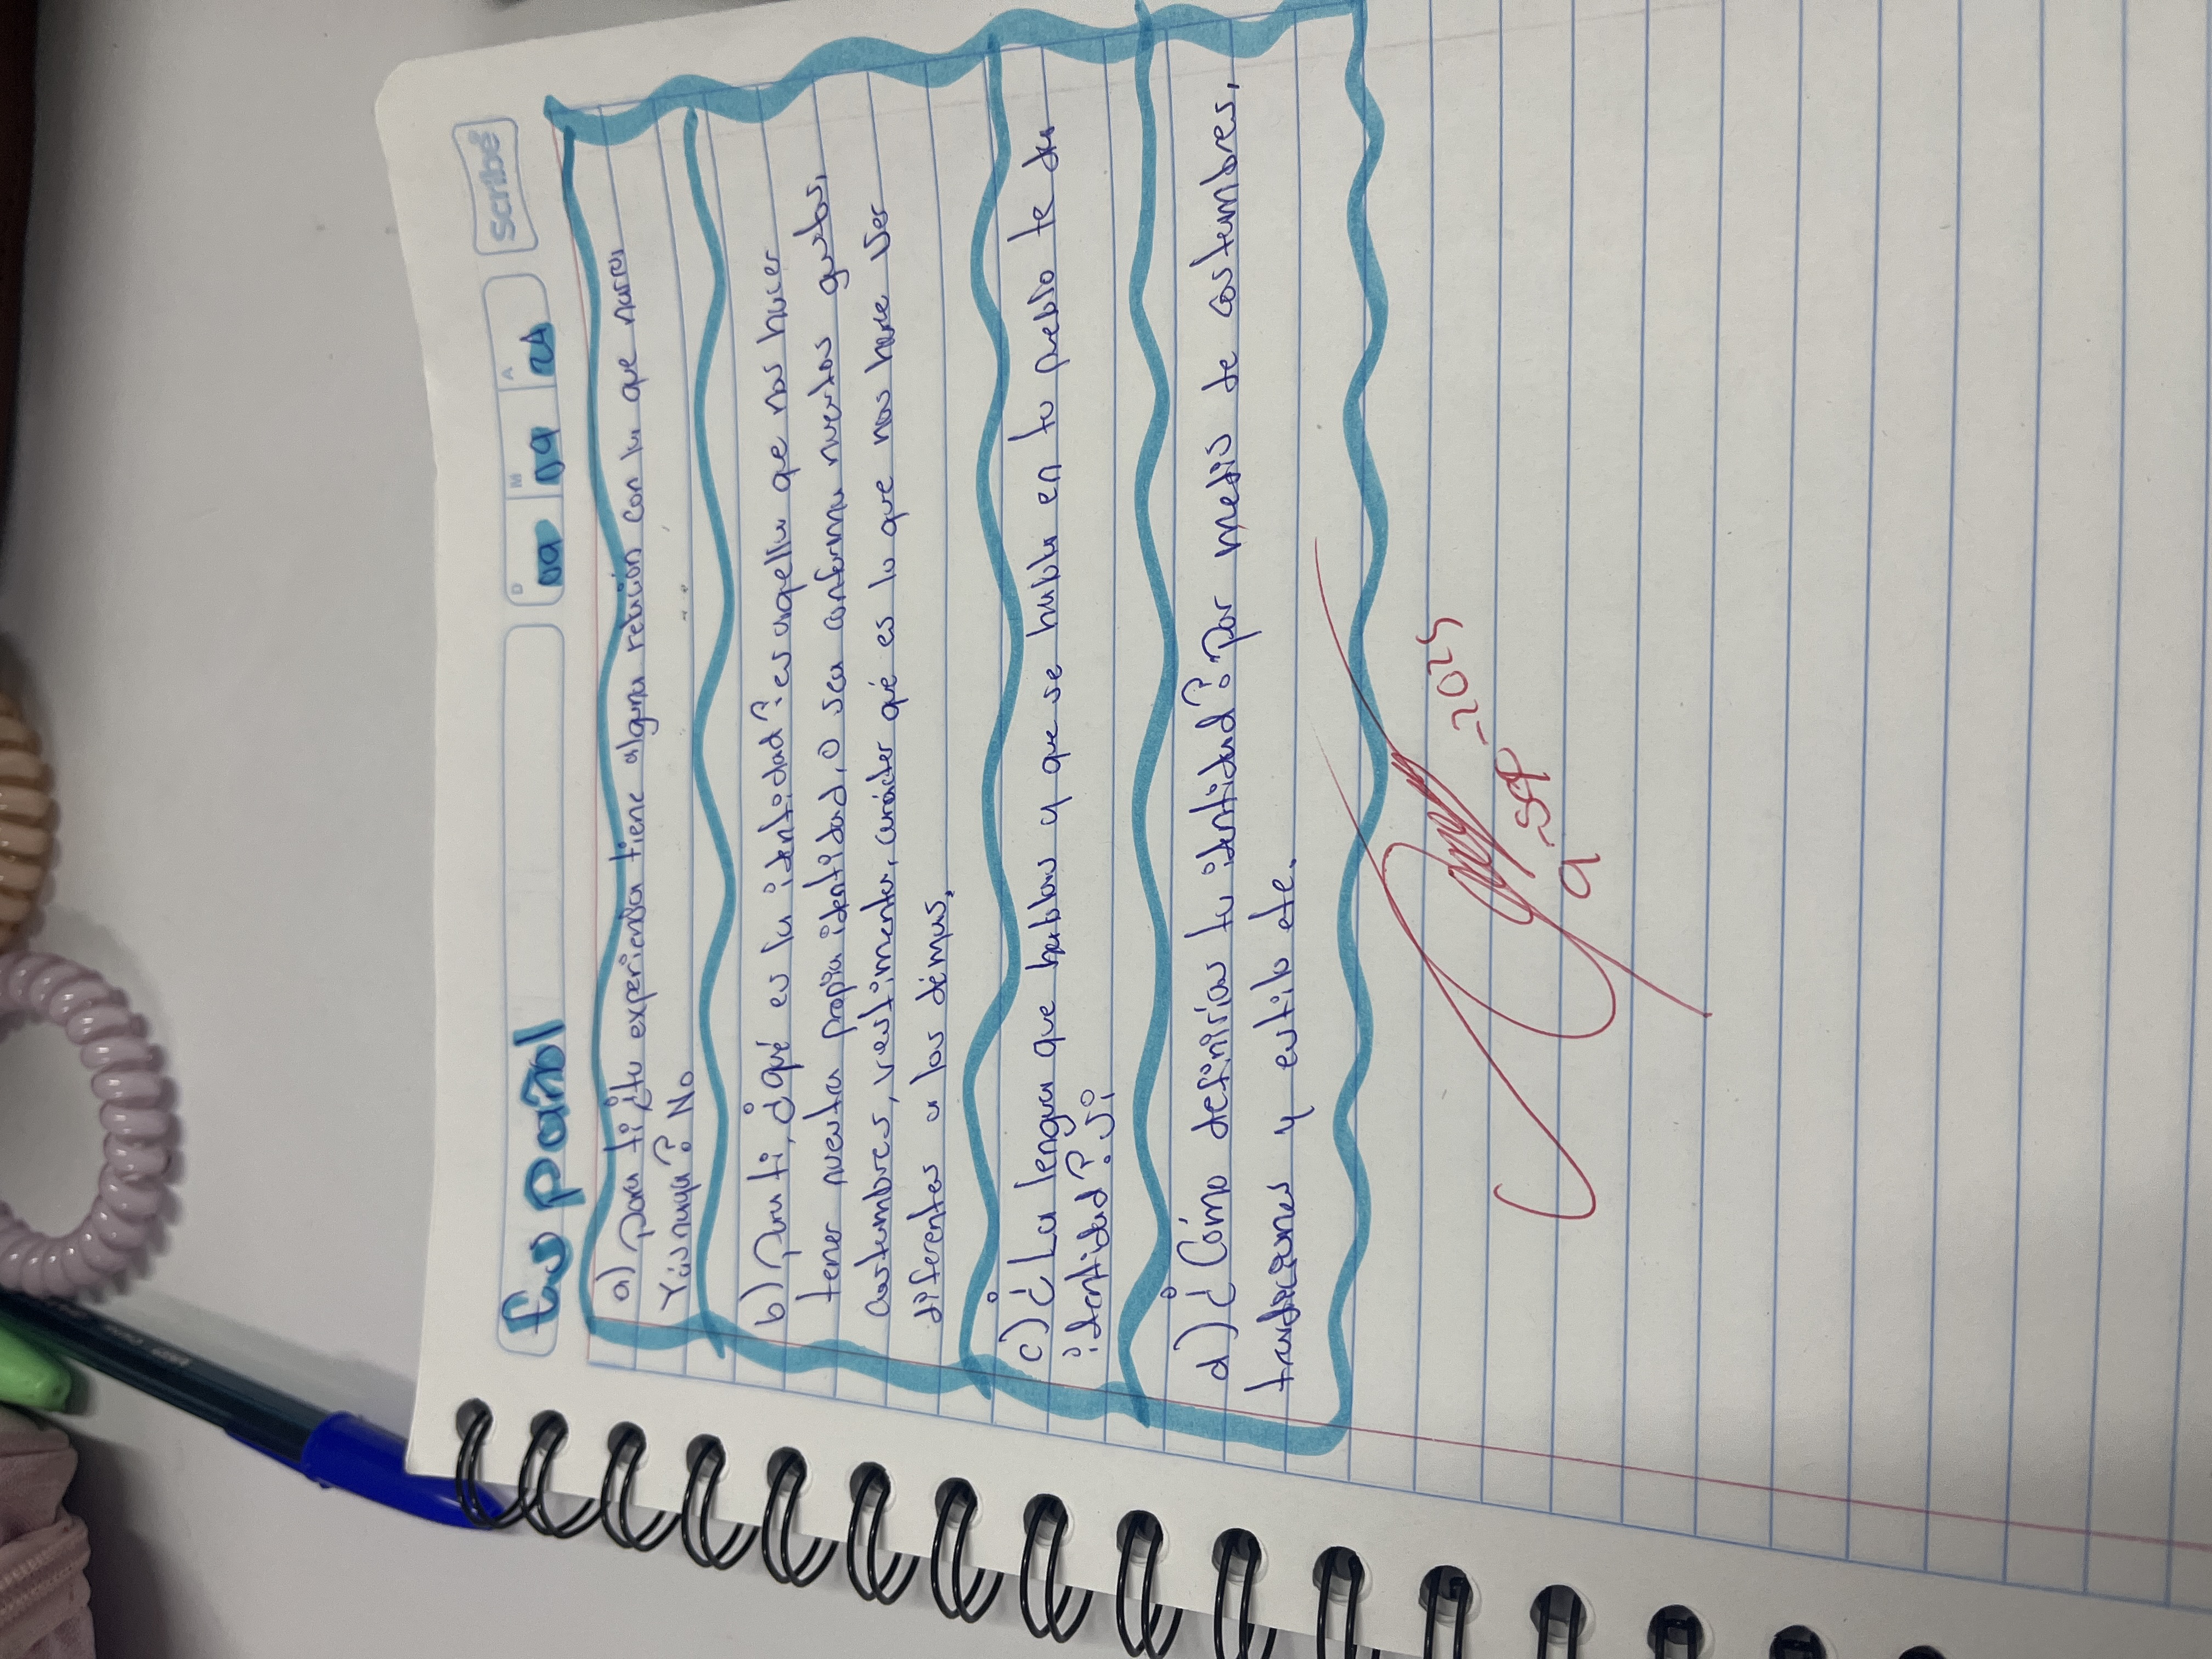 Scribe
Español
D M A
09 09 24
a) para ti ¿tu experiensa tiene alguna relación con la que narra
Yásnaya? No
b) para ti, ¿qué es la identidad? es aqella que nos hacer
tener nuestra propia identidad, o sea conforma nuestos gustos,
costumbres, vestimenta, carácter qué es lo que nos hace ser
diferentes a los démas.
c) ¿La lengua que hablas y que se habla en tu pueblo te da
identidad? si
d) ¿Cómo definirías tu identidad? por medio de costumbres,
tradiciones y estilo etc.
9-sep-2024